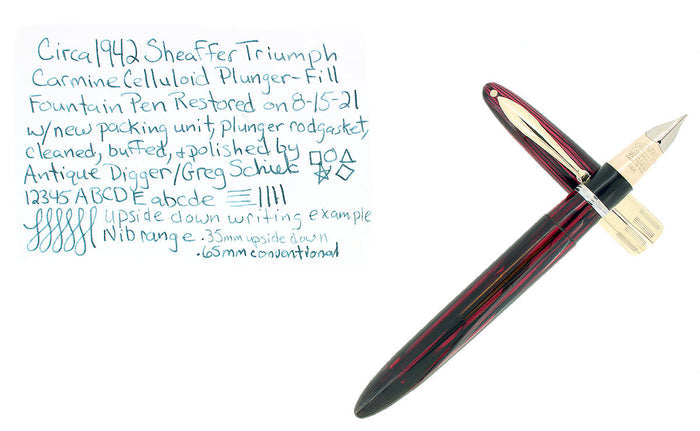 Circa 1942 Sheaffer Triumph
Carmine Celluloid Plunger-Fill
Fountain Pen Restored on 8-15-21
w/new packing unit, plunger rod gasket,
cleaned, buffed, + polished by
Antique Digger/Greg
12345 ABCDE abcde
upside down writing example
Nib range .35mm upside down
.65mm conventional